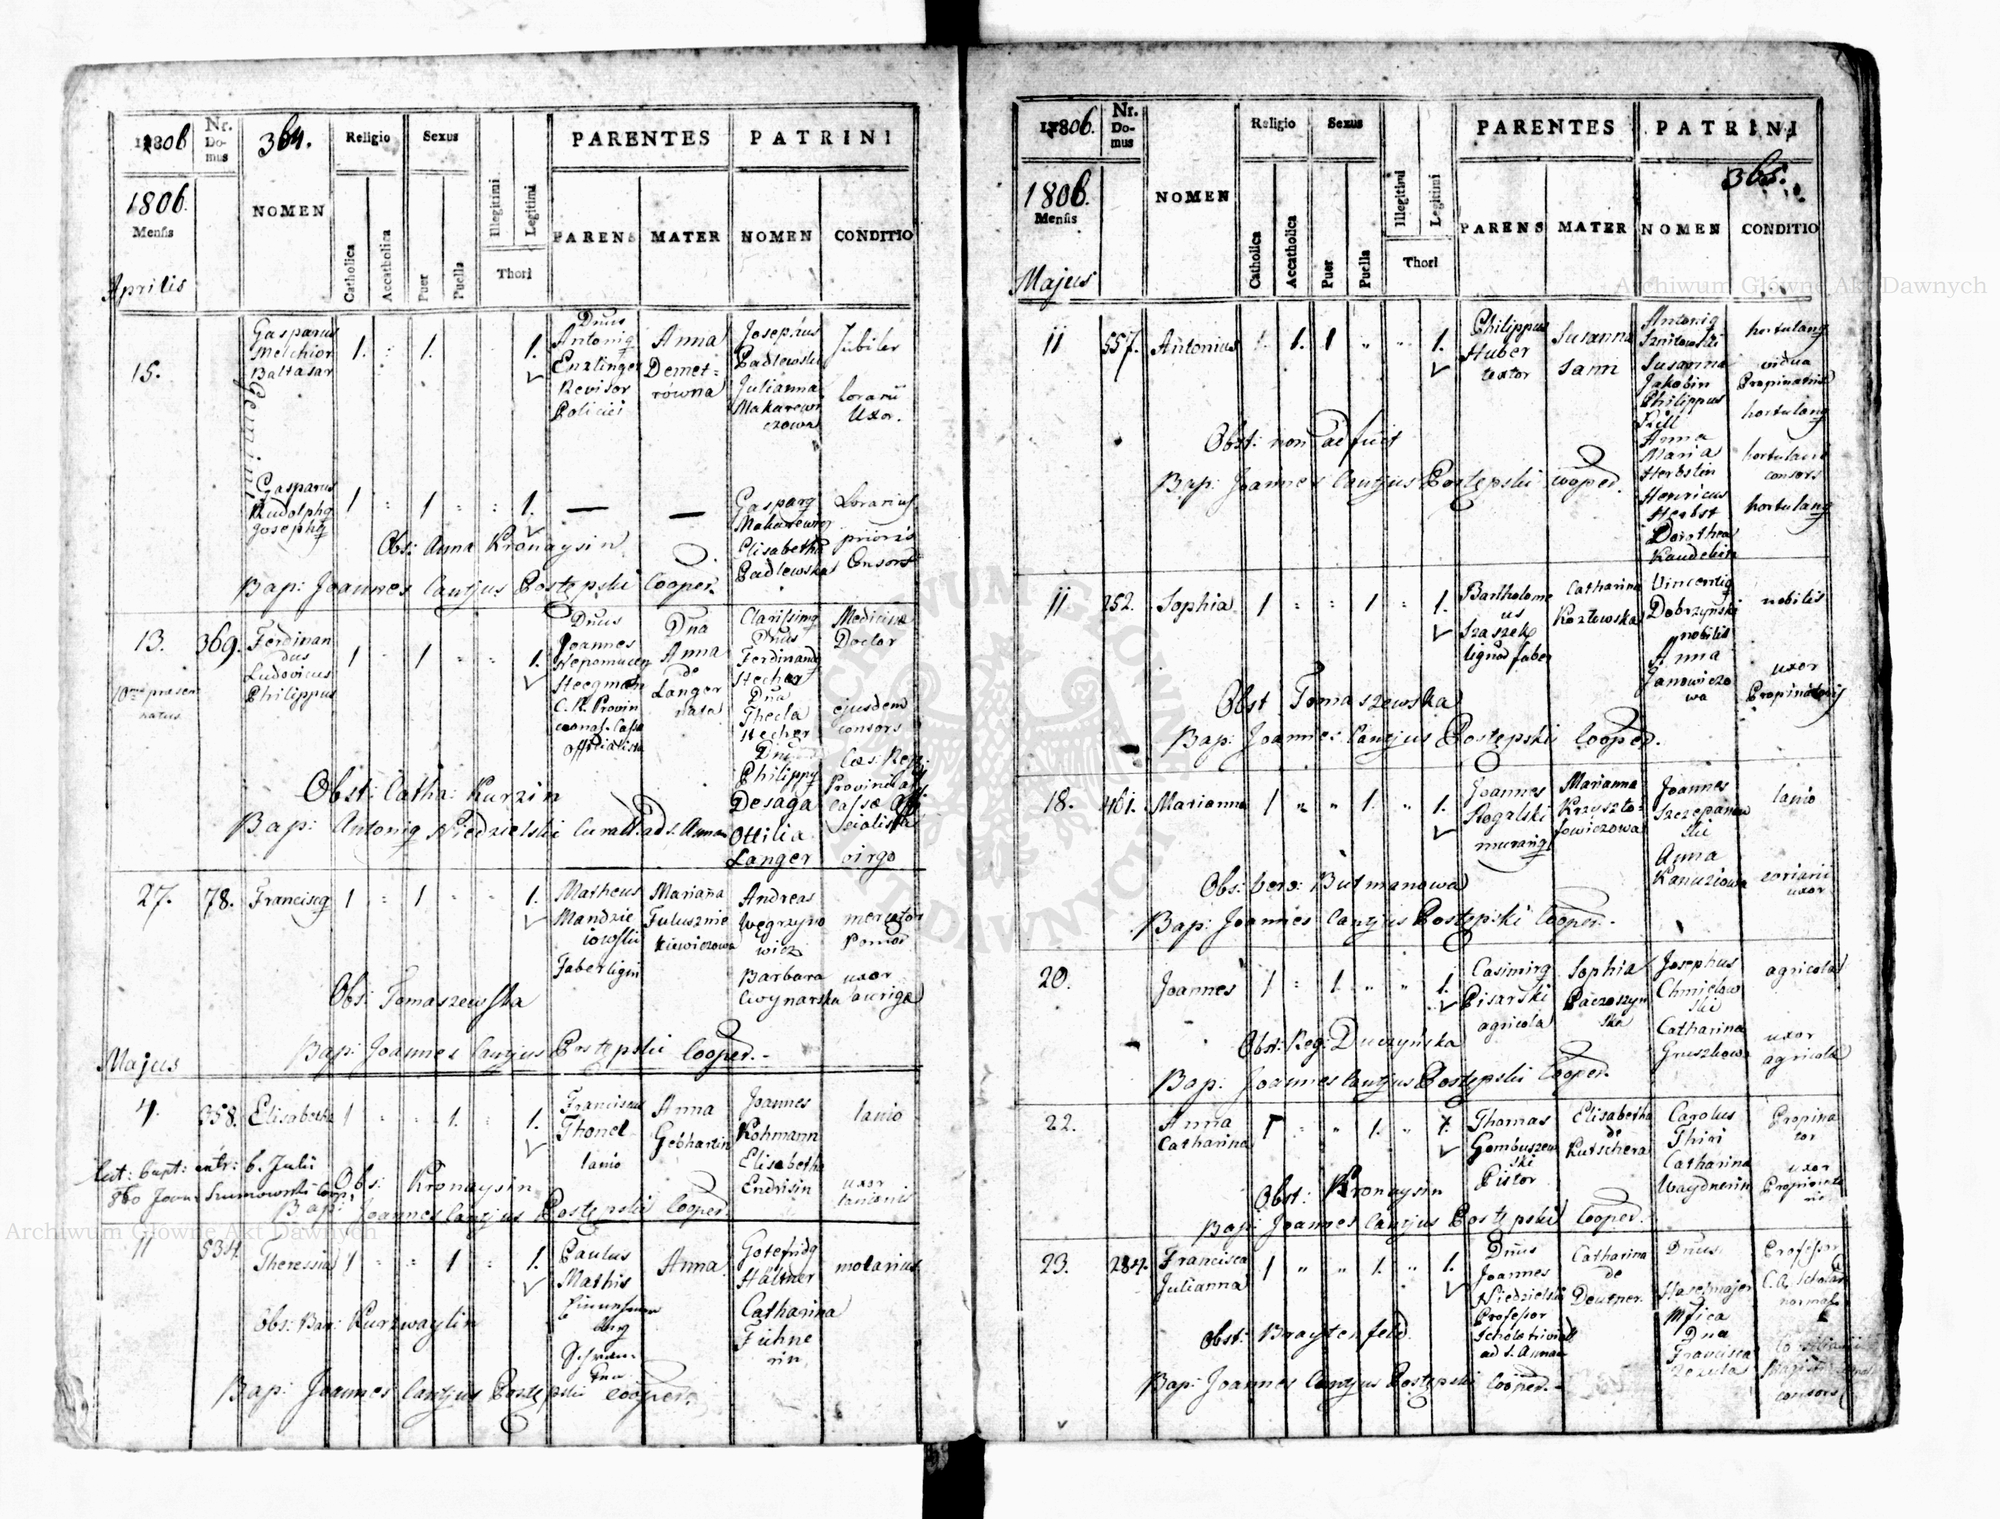 1806
Nr. Domus
364.
Religio
Sexus
PARENTES
PATRINI
1806.
Mensis
Aprilis
NOMEN
Catholica
Accatholica
Puer
Puella
Illegitimi
Legitimi
Thori
PARENS
MATER
NOMEN
CONDITIO
15.
Gasparus
Melchior
Baltasar
Gemini
1.
1.
1.
Dnus
Antonig
Enzlinger
Revisor
Policiei
Anna
Demet=
równa
Josephus
Padlewski
Julianna
Makarewi
czowa
Jubiler
lorarii
Uxor.
Gasparus
Rudolphg
Josephg
1
1
1.
Gasparg
Makarewicz
Elisabetha
Padlewska
Lorarius
prioris
Consors
Obs: Anna Kronaysin
Bap: Joannes Cantius Postępski Cooper.
13.
369.
natus
Ferdinan
dus
Ludovicus
Philippus
1
1
1.
Dnus
Joannes
Nepomucen
Steegman
C. R. Provin
Officialista
Dna
Anna
de
Langer
nata
Clarissimg
Dnus
Ferdinandg
Stecher
Dna
Thecla
Stecher
Philippg
Desaga
Ottilia
Langer
Medicinæ
Doctor
ejusdem
consors
virgo
Obst: Catha: Kurzin
Bap: Antonig Niedzielski Curatt. ad S. Annam
27.
78.
Franciscg
1
1
1.
Matheus
Mandzie
iowski
Faber lign
Marianna
Andreas
Węgrzyno
wicz
Barbara
Cwynarska
mercator
uxor
aurigæ
Obs: Tomaszewska
Bap: Joannes Cantius Postępski Cooper.
Majus
4.
358.
Elisabetha
1
1.
1.
Franciscus
Thonel
lanio
Anna
Gebhartin
Joannes
Kohmann
Elisabetha
Endrisin
lanio
uxor
lanionis
Obs: Kronaysin
Bap: Joannes Cantius Postępski Cooper.
11
534.
Theressia
1
1
1.
Paulus
Mathis
Anna
Gotefridg
Hältner
Catharina
Führne
rin
molarius
Obs: Bar: Kurzwaylin
Bap: Joannes Cantius Postępski Cooper.
1806.
Nr. Domus
NOMEN
Religio
Sexus
PARENTES
PATRINI
365.
1806.
Mensis
Majus
Catholica
Accatholica
Puer
Puella
Illegitimi
Legitimi
Thori
PARENS
MATER
NOMEN
CONDITIO
11
557.
Antonius
1.
1.
1
1.
Philippus
Huber
textor
Susanna
Sann
Antonig
Susanna
Jakobin
Philippus
Anna
Maria
Herbstin
Henricus
Herbst
Dorothea
Kaudelin
hortulang
vidua
Propinatris
hortulang
hortulani
consors
hortulang
Obst: non adfuit
Bap: Joannes Cantius Postępski cooper.
11.
252.
Sophia
1
1
1.
Bartholome
us
Szaszek
lignar faber
Catharina
Kozłowska
Vincentig
Dobrzynski
nobilis
Anna
Janowiczo
wa
nobilis
uxor
Propinatoris
Obst Tomaszewska
Bap: Joannes Cantius Postępski Cooper.
18.
461.
Marianna
1
1.
1.
Joannes
Rogalski
murarig
Marianna
Krzyszto=
fowiczowa
Joannes
Szczepanow
ski
Anna
Kanuziowa
lanio
coriarii
uxor
Obs: vero: Butmanowa
Bap: Joannes Cantius Postępski Cooper.
20.
Joannes
1
1.
1.
Casimirg
Pisarski
agricola
Sophia
Paczoszyn
ska
Josephus
Chmielow
ski
Catharina
Gruszkowa
agricola
uxor
agricolæ
Obst: Reg: Duczyńska
Bap: Joannes Cantius Postępski Cooper.
22.
Anna
Catharina
1
1.
1
Thomas
Gombuszew
ski
Pistor
Elisabetha
de
Kutschera
Carolus
Thiri
Catharina
Waydnerin
Propina
tor
uxor
Obst: Kronaysin
Bap: Joannes Cantius Postępski Cooper.
23.
284.
Francisca
Julianna
1
1.
1.
Dnus
Joannes
Niedzielski
Professor
Scholæ trivial
ad S. Annam
Catharina
de
Deutper.
Dnus
Haselmajer
Dna
Francisca
Professor
normal
consors
Obst: Braytenfeld.
Bap: Joannes Cantius Postępski Cooper.
Archiwum Główne Akt Dawnych
Archiwum Główne Akt Dawnych
ARCHIWUM GŁÓWNE AKT DAWNYCH